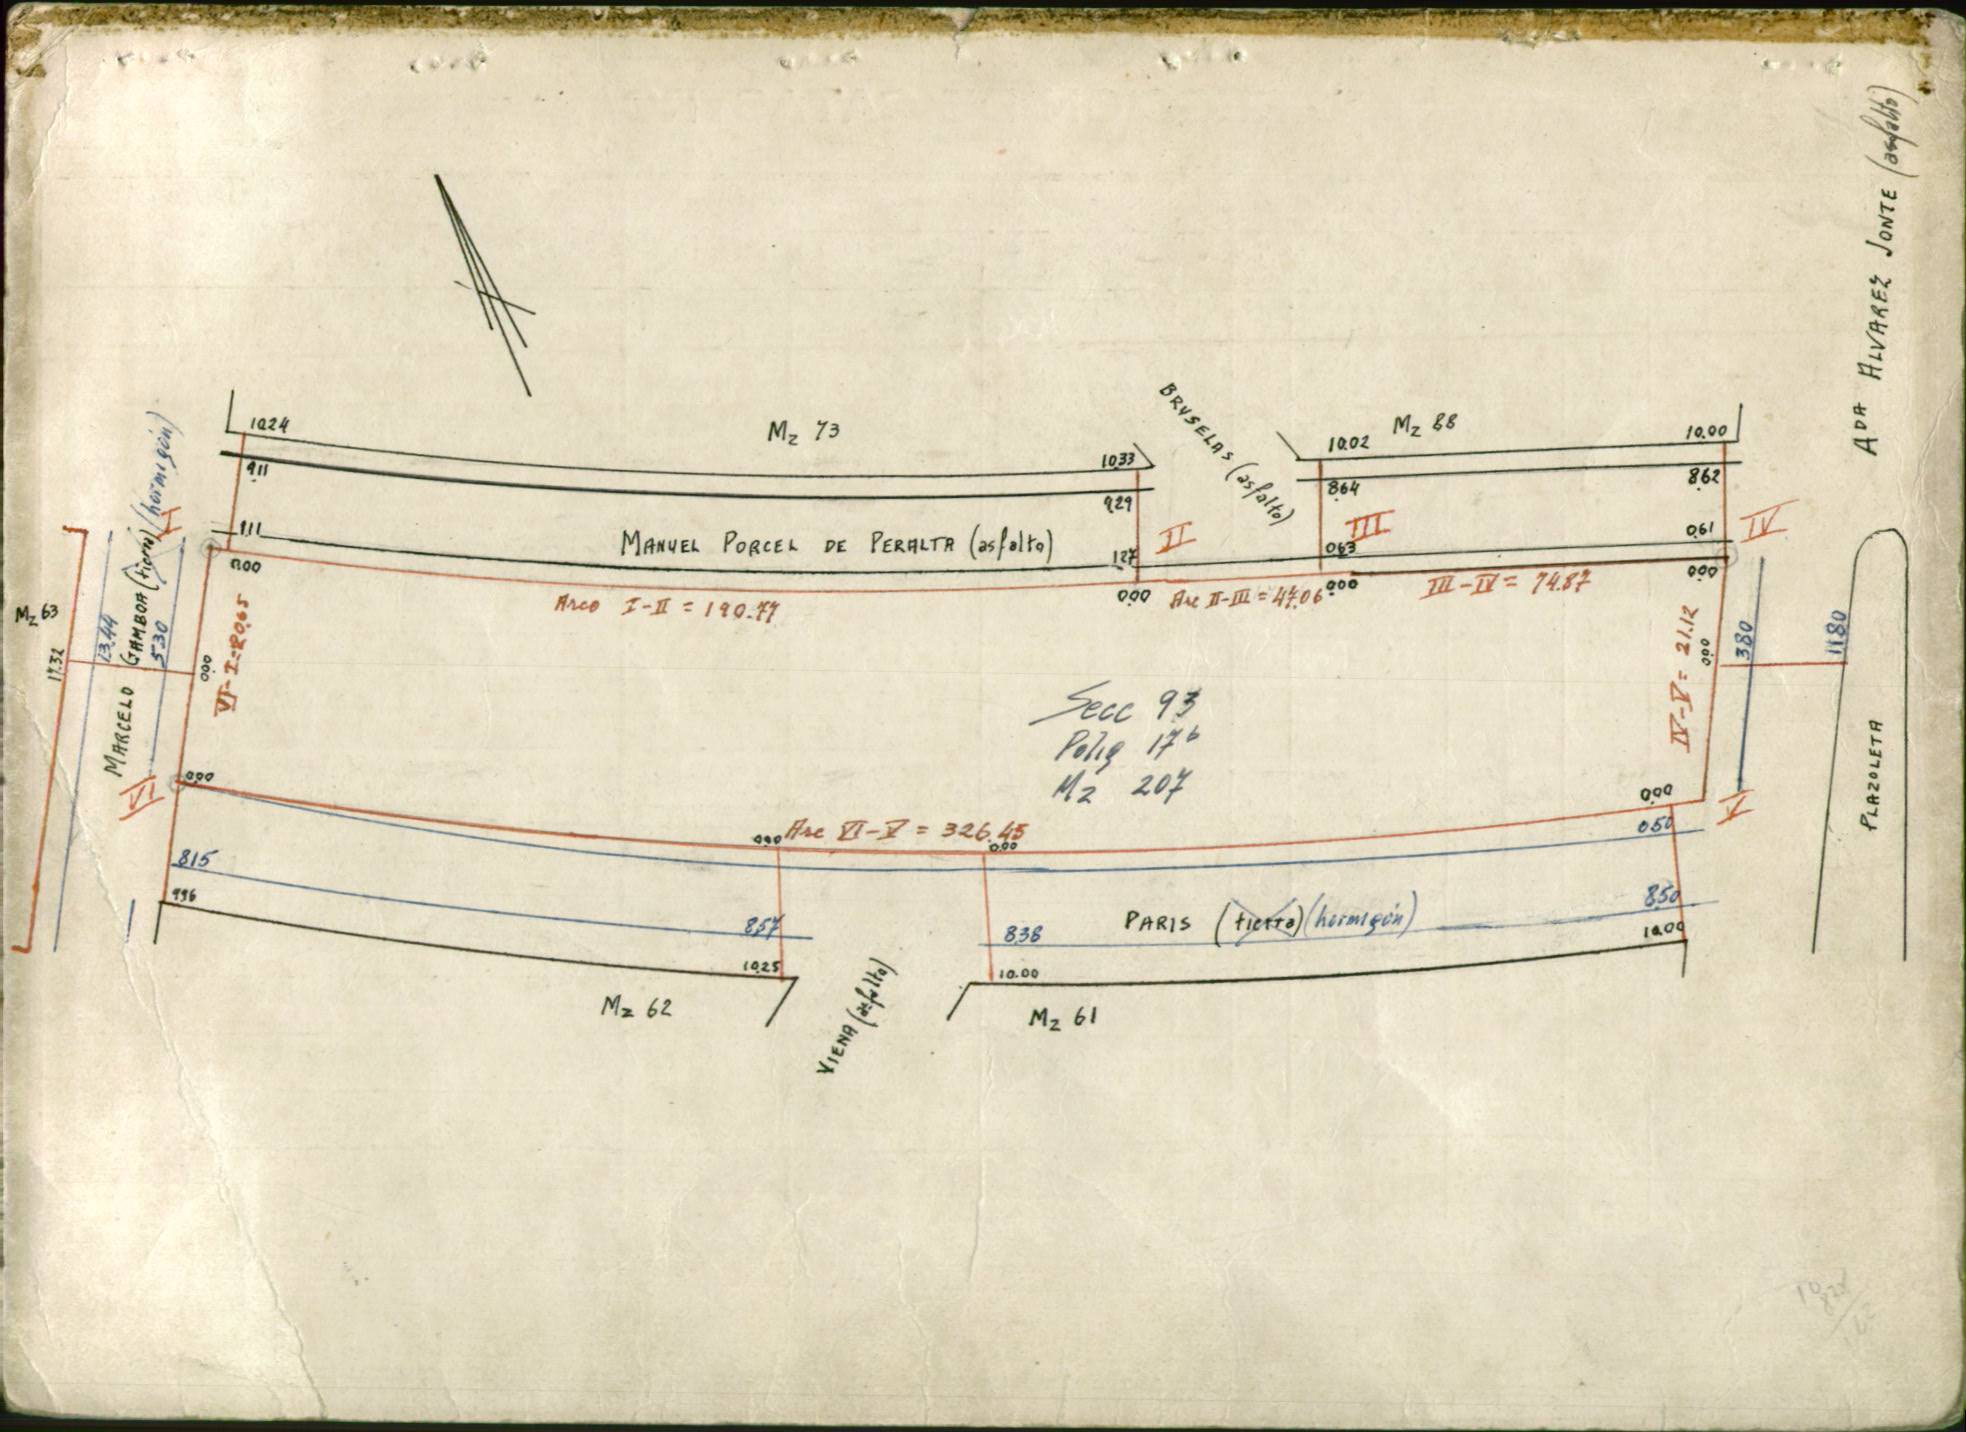 ADA ALVAREZ JONTE (asfalto)
10.24
Mz 73
10.33
BRUSELAS (asfalto)
10.02
Mz 88
10.00
9.11
9.29
8.64
8.62
1.11
MANUEL PORCEL DE PERALTA (asfalto)
1.27
II
0.63
III
0.61
IV
I
0.00
Arco I-II = 190.77
0.00
Arc II-III = 47.06
0.00
III-IV = 74.87
0.00
Mz 63
17.32
13.44
MARCELO GAMBOA (tierra) (hormigón)
5.30
0.00
VI-I=20.65
IV-V= 21.12
0.00
3.80
11.80
Secc 93
Polig 17b
Mz 207
PLAZOLETA
VI
0.00
0.00
Arc VI-V = 326.45
0.00
0.00
V
0.50
8.15
9.96
8.57
10.25
8.38
10.00
PARIS (tierra) (hormigón)
8.50
10.00
Mz 62
VIENA (asfalto)
Mz 61